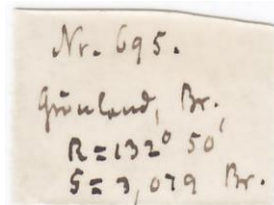 Nr. 695.
Grönland, Br.,
R = 132° 50'
S = 3,079 Br.